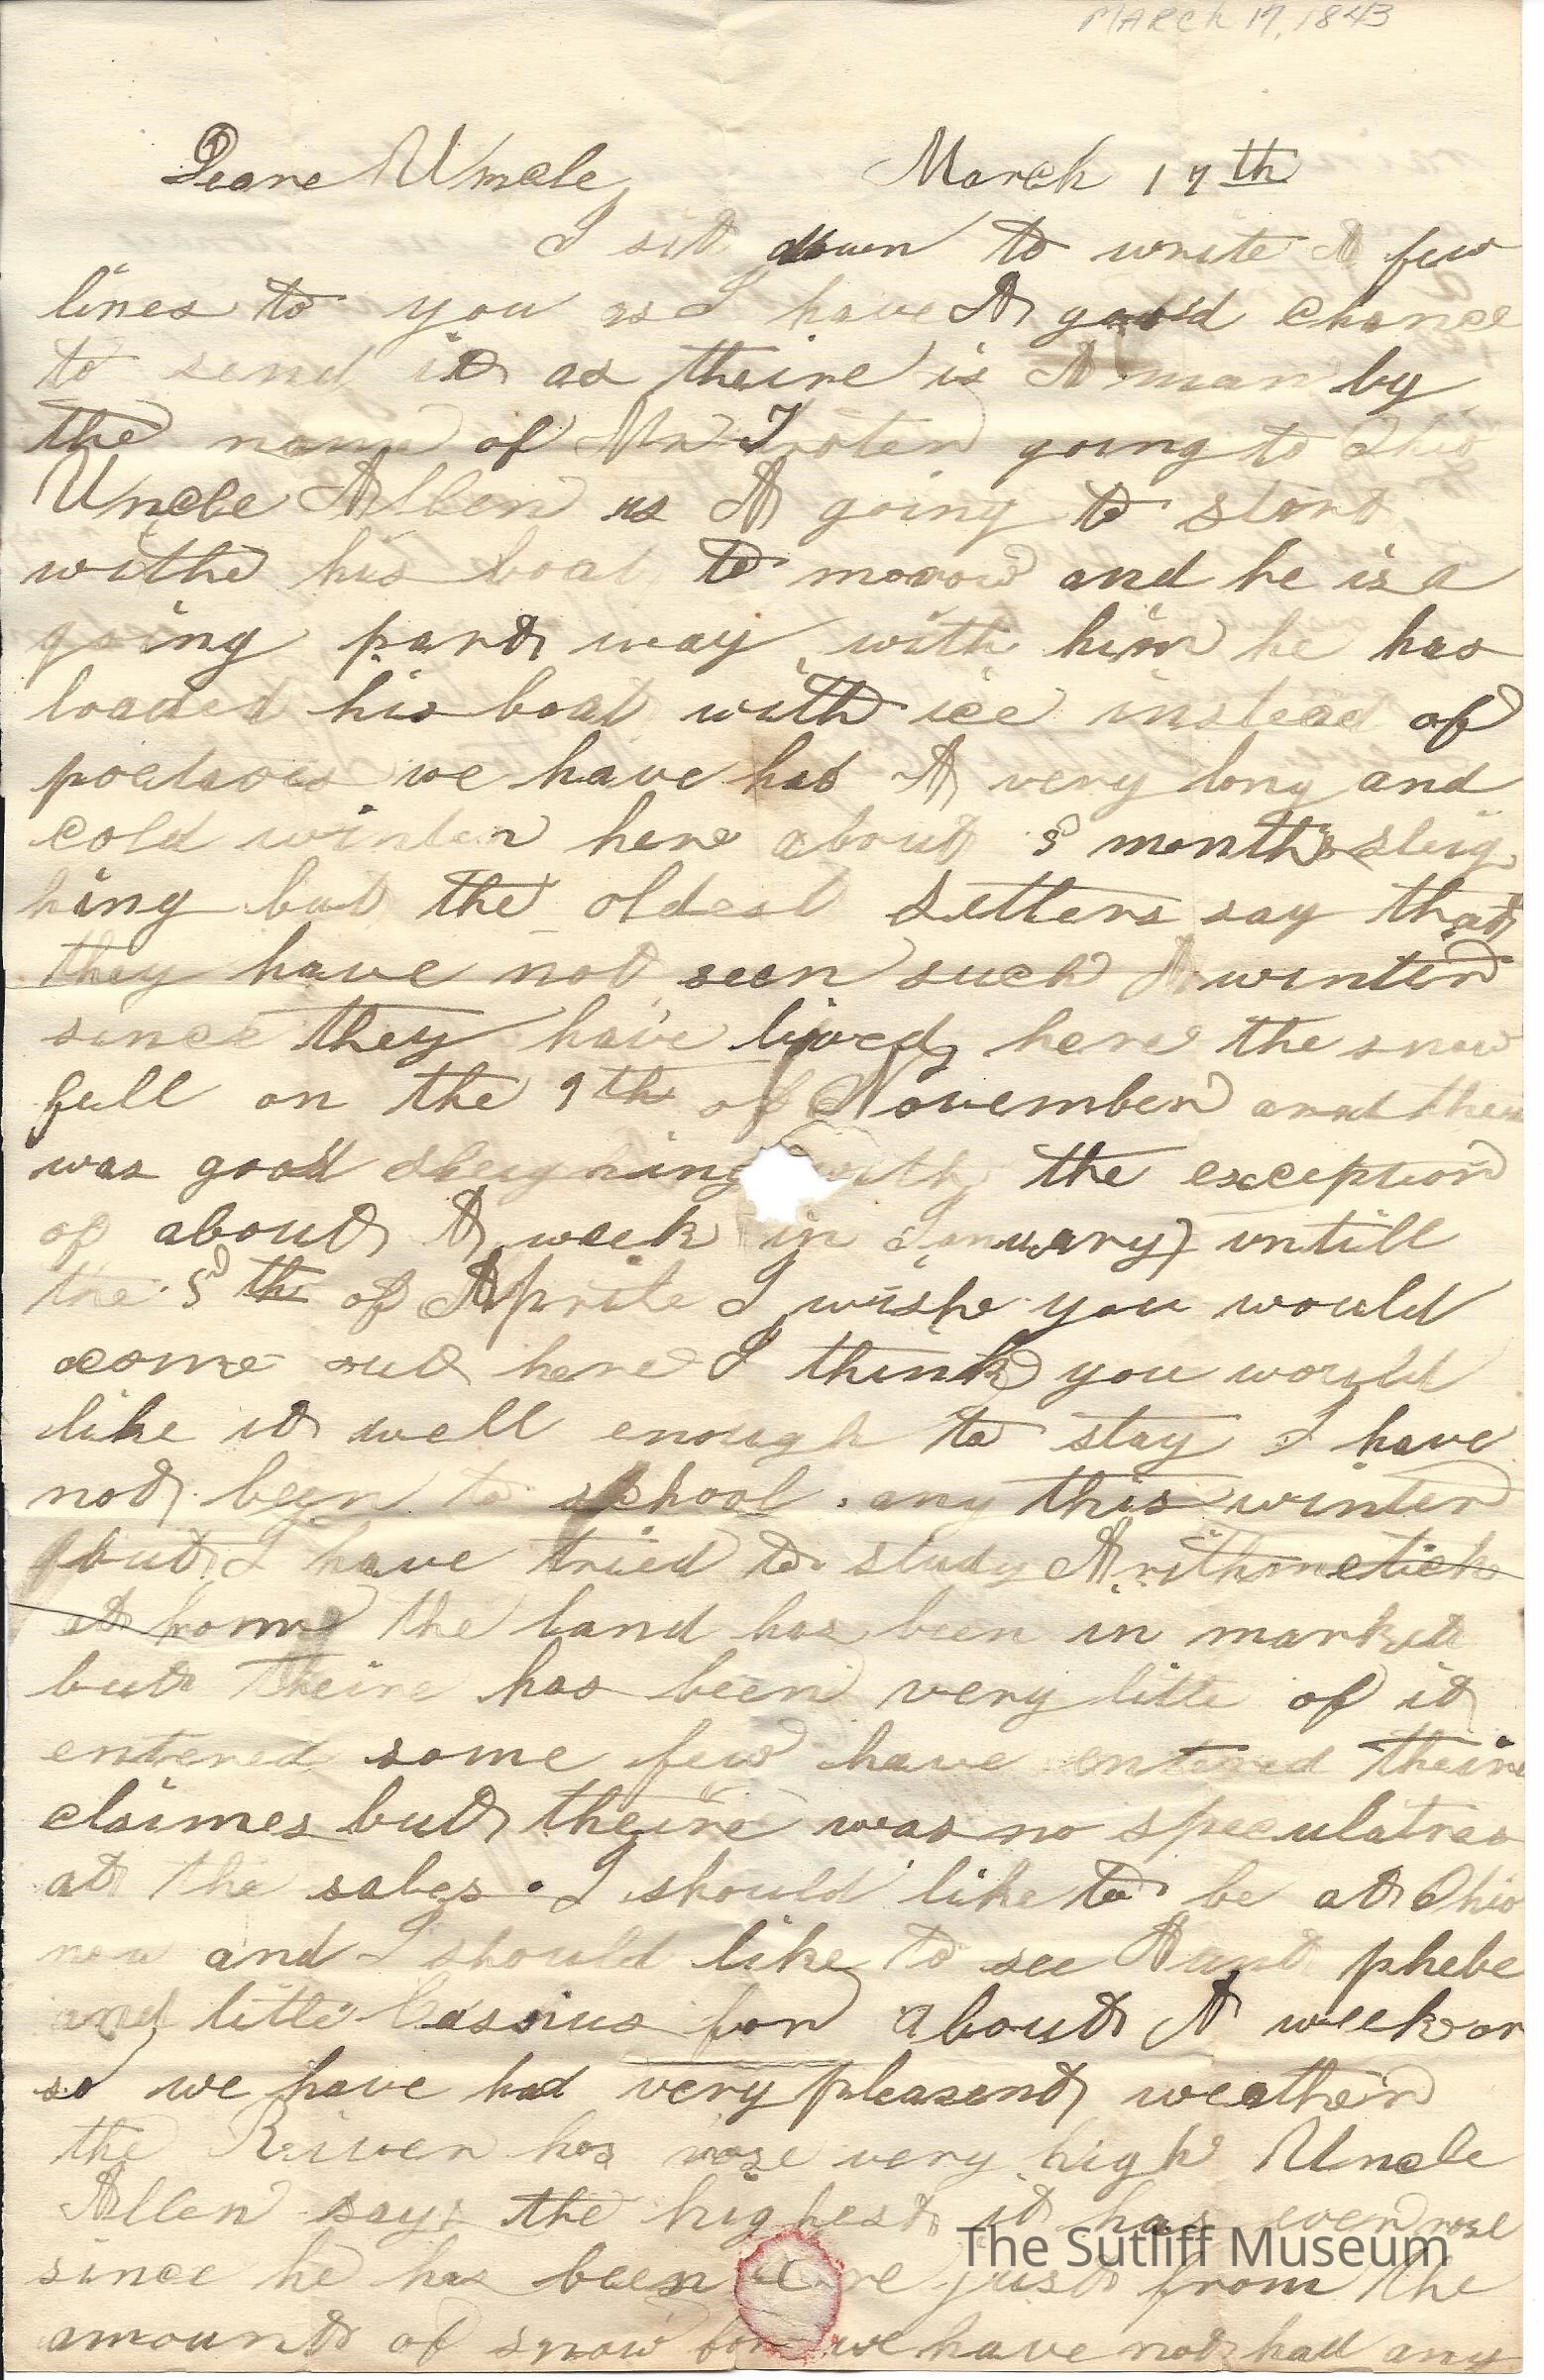 MARCH 17, 1843
Deare Uncle, March 17th
I sit down to write A few
lines to you as I have A good chance
to send it as theire is A man by
the name of Mr Troter going to Ohio
Uncle Allen is A going to start
withe his boat to morow and he is a
going part way with him he has
loaded his boat with ice instead of
poetatoes we have had A very long and
cold winter here about 5 months sleig
hing but the oldest Settlers say that
they have not seen such A winter
since they have lived here the snow
fell on the 9th of November and there
was good sleighing with the exception
of about A week in January untill
the 5th of Aprile I wishe you would
come out here I think you would
like it well enough to stay I have
not been to school any this winter
but I have tried to study Arithmetick
at home the land has been in market
but theire has been very litte of it
entered some few have entered theire
claimes but theire was no speculatres
at the sales. I should like to be at Ohio
now and I should like to see Aunt phebe
and little Cassius for about A week or
so we have had very pleasent weather
the Reiver has rose very high Uncle
Allen says the highest it has ever rose
since he has been here just from the
amount of snow for we have not had any
The Sutliff Museum